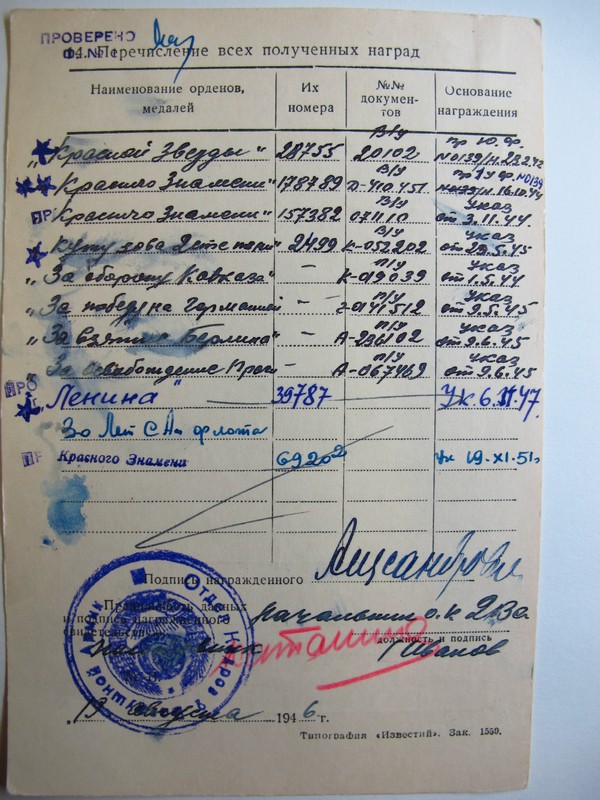 ПРОВЕРЕНО
14. Перечисление всех полученных наград
Наименование орденов, медалей
Их номера
№№ документов
Основание награждения
„Красной Звезды" 28755 В/у 20102
„Красного Знамени" 178789 В/у Д-410451
„Красного Знамени" 157382 В/у 071110 Указ от 3.11.44
Кутузова 2 степени" 2499 В/у К-052202 Указ от 29.5.45
„За оборону Кавказа" — п/у К-019039 Указ от 1.5.44
„За победу на Германией — п/у 0141512 Указ от 9.5.45
„За взятие Берлина" — п/у А-236102 Указ от 9.6.45
„За освобождение Праги п/у А-067469 Указ от 9.6.45
„Ленина" 39787 Ук. 6.XI.47.
30 Лет СА и флота
Красного Знамени 69202 Ук 19-XI-51г
Подпись награжденного
Правильность данных
и подпись награжденного
свидетельствую:
начальник о.к 2 ВА
должность и подпись
Иванов
Отдел Кадров
13 августа 1946 г.
Типография «Известий». Зак. 1559.